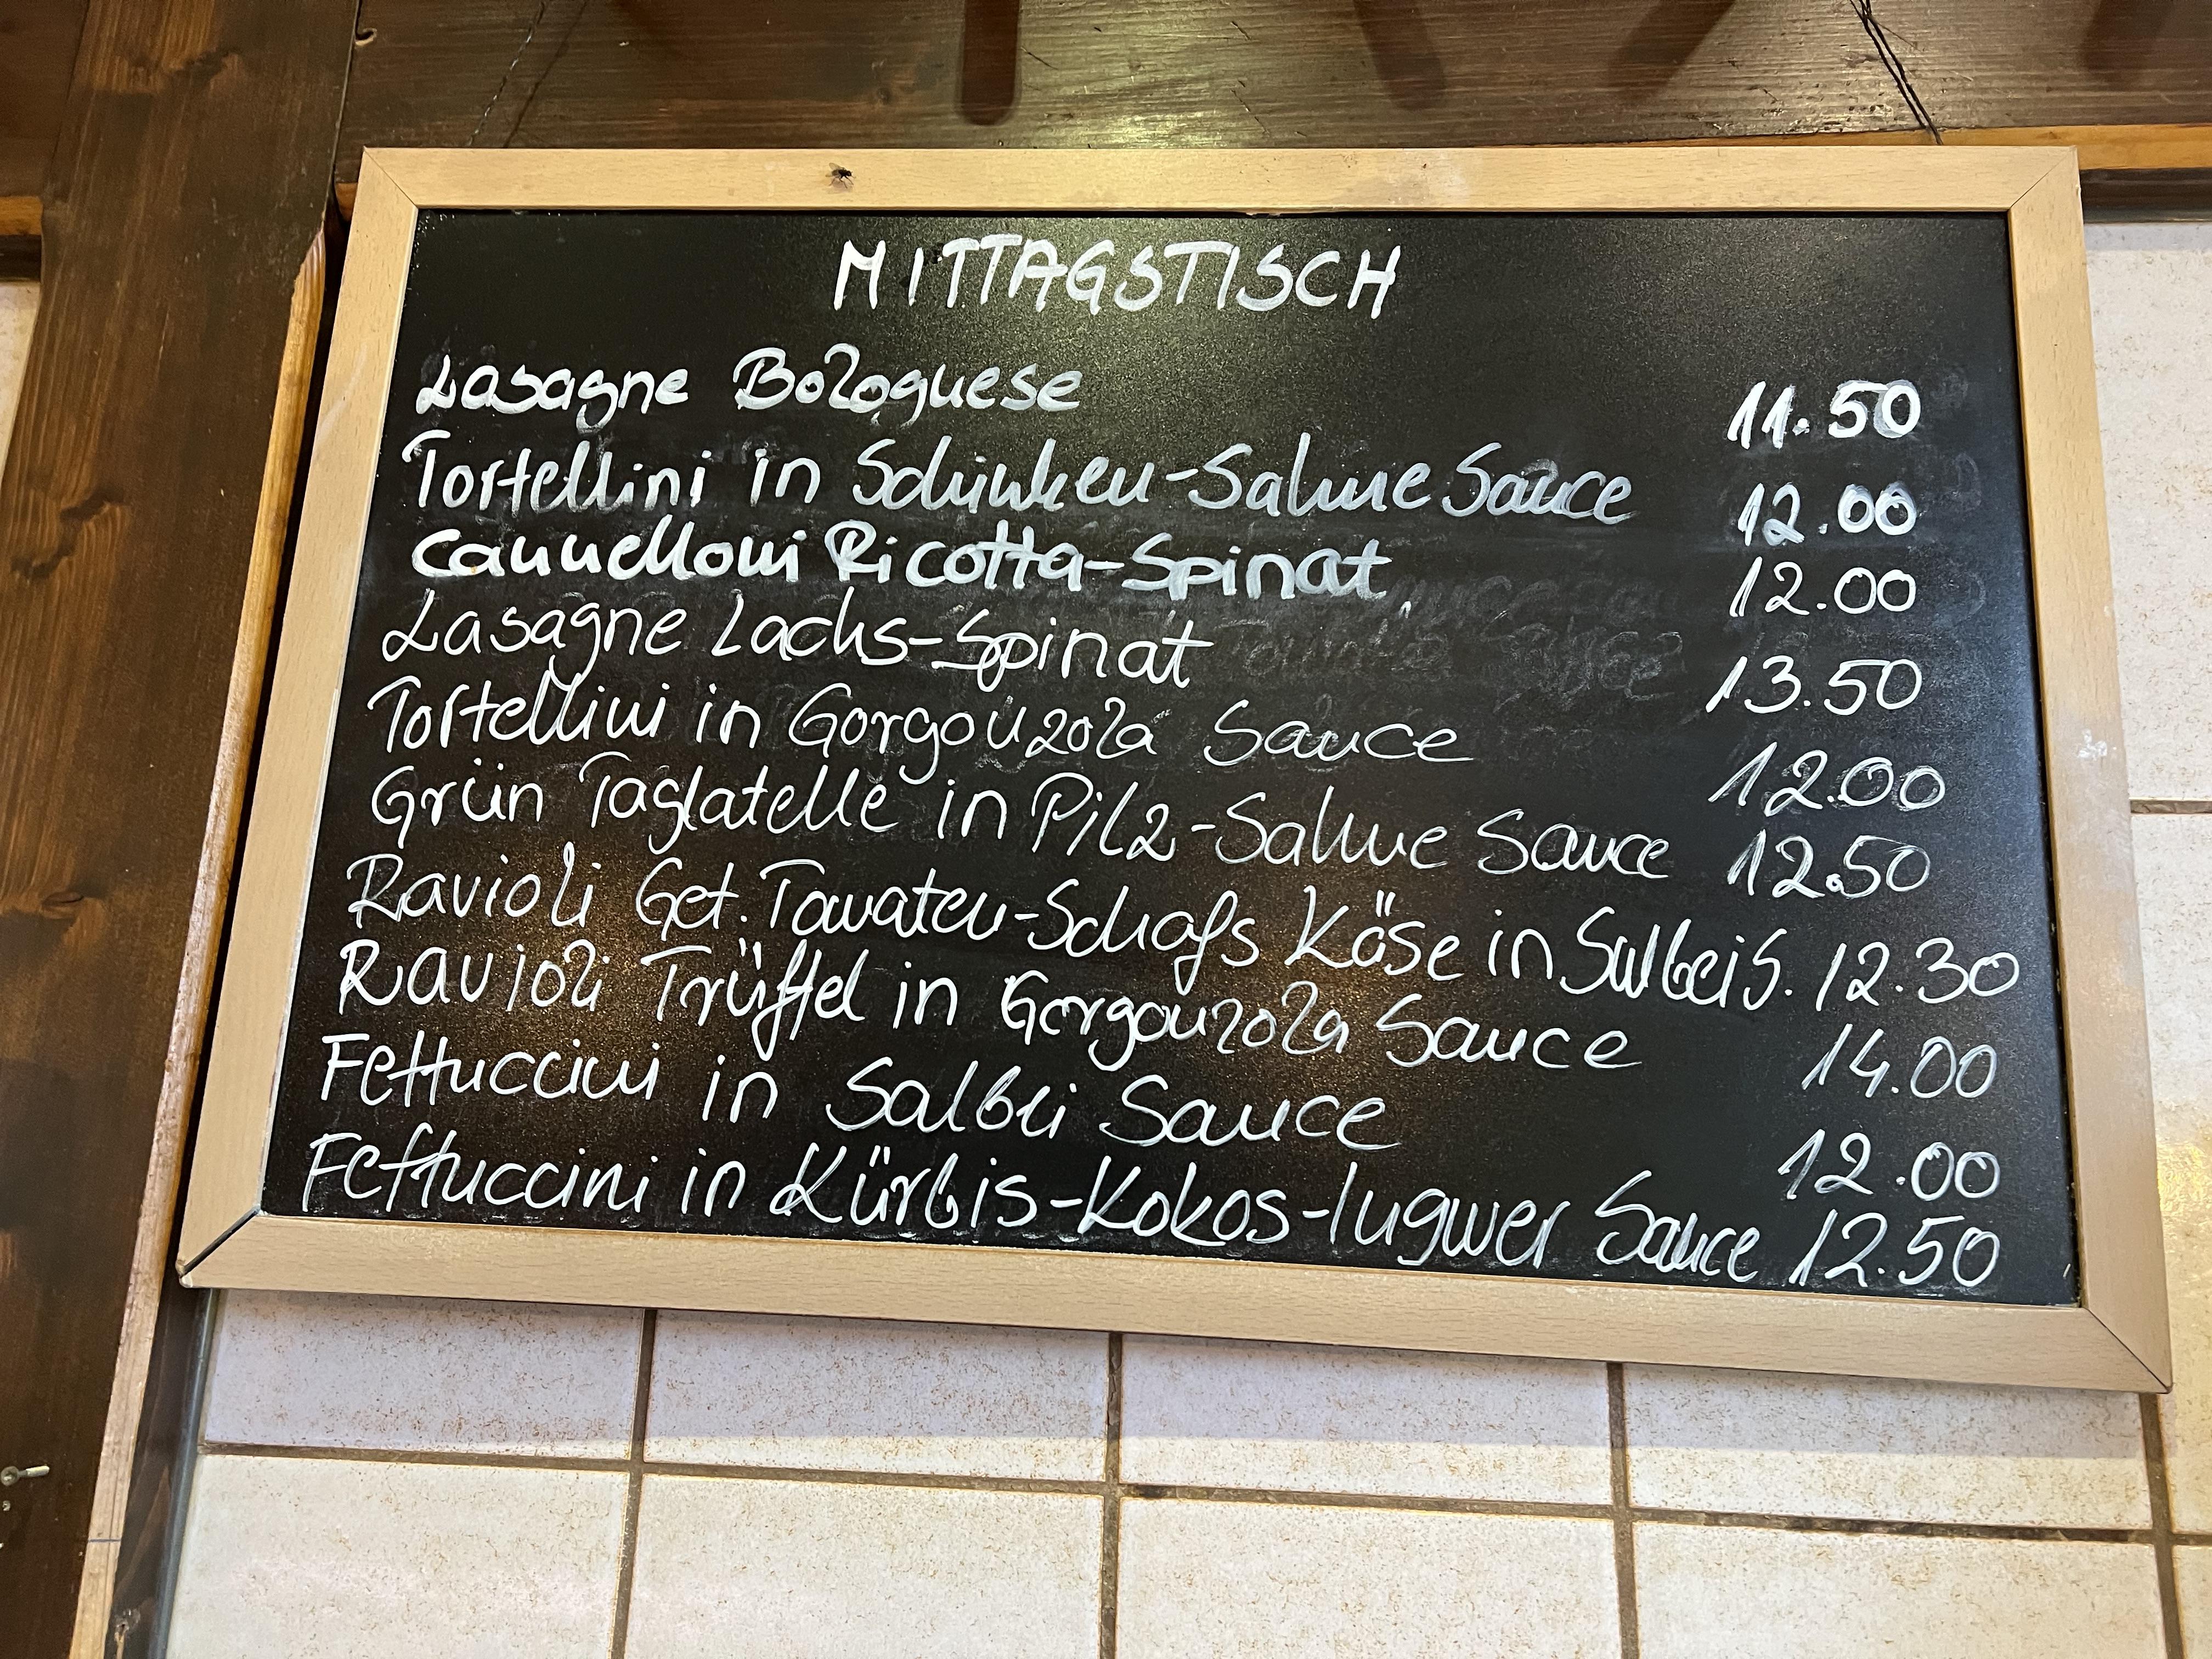 MITTAGSTISCH
Lasagne Bolognese 11.50
Tortellini in Schinken-Sahne Sauce 12.00
Cannelloni Ricotta-Spinat 12.00
Lasagne Lachs-Spinat 13.50
Tortellini in Gorgonzola Sauce 12.00
Grün Taglatelle in Pilz-Sahne Sauce 12.50
Ravioli Get. Tomaten-Schafs Käse in Salbei S. 12.30
Ravioli Trüffel in Gorgonzola Sauce 14.00
Fettuccini in Salbei Sauce 12.00
Fettuccini in Kürbis-Kokos-Ingwer Sauce 12.50